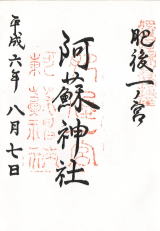 肥後一ノ宮
阿蘇神社
平成六年八月七日